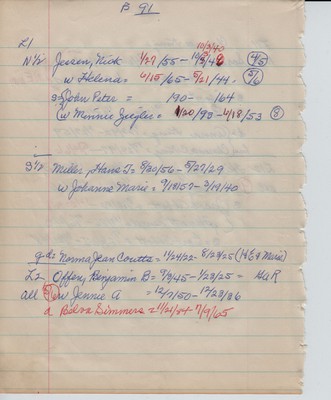 B 91
L1
10/3/40
N½ Jessen, Nick 1/27/55 - 10/3/40 (4/5)
w Helena = 4/15/65 - 5/21/44. (5/6)
s John Peter = 190 - 164
(w Minnie Jiegler = 1/20/93 - 4/18/53 (8)
S½ Miller, Hans J = 8/20/56 - 5/27/29
w Johanne Marie = 9/18/57 - 3/19/40
gd= Norma Jean Coutts = 11/24/22 - 8/29/25 (H &
L2 Offen, Benjamin B = 9/9/45 - 1/23/25 = GAR
all w Jennie A = 12/7/50 - 12/23/36
d Belva Simmers = 11/21/84 - 7/9/65